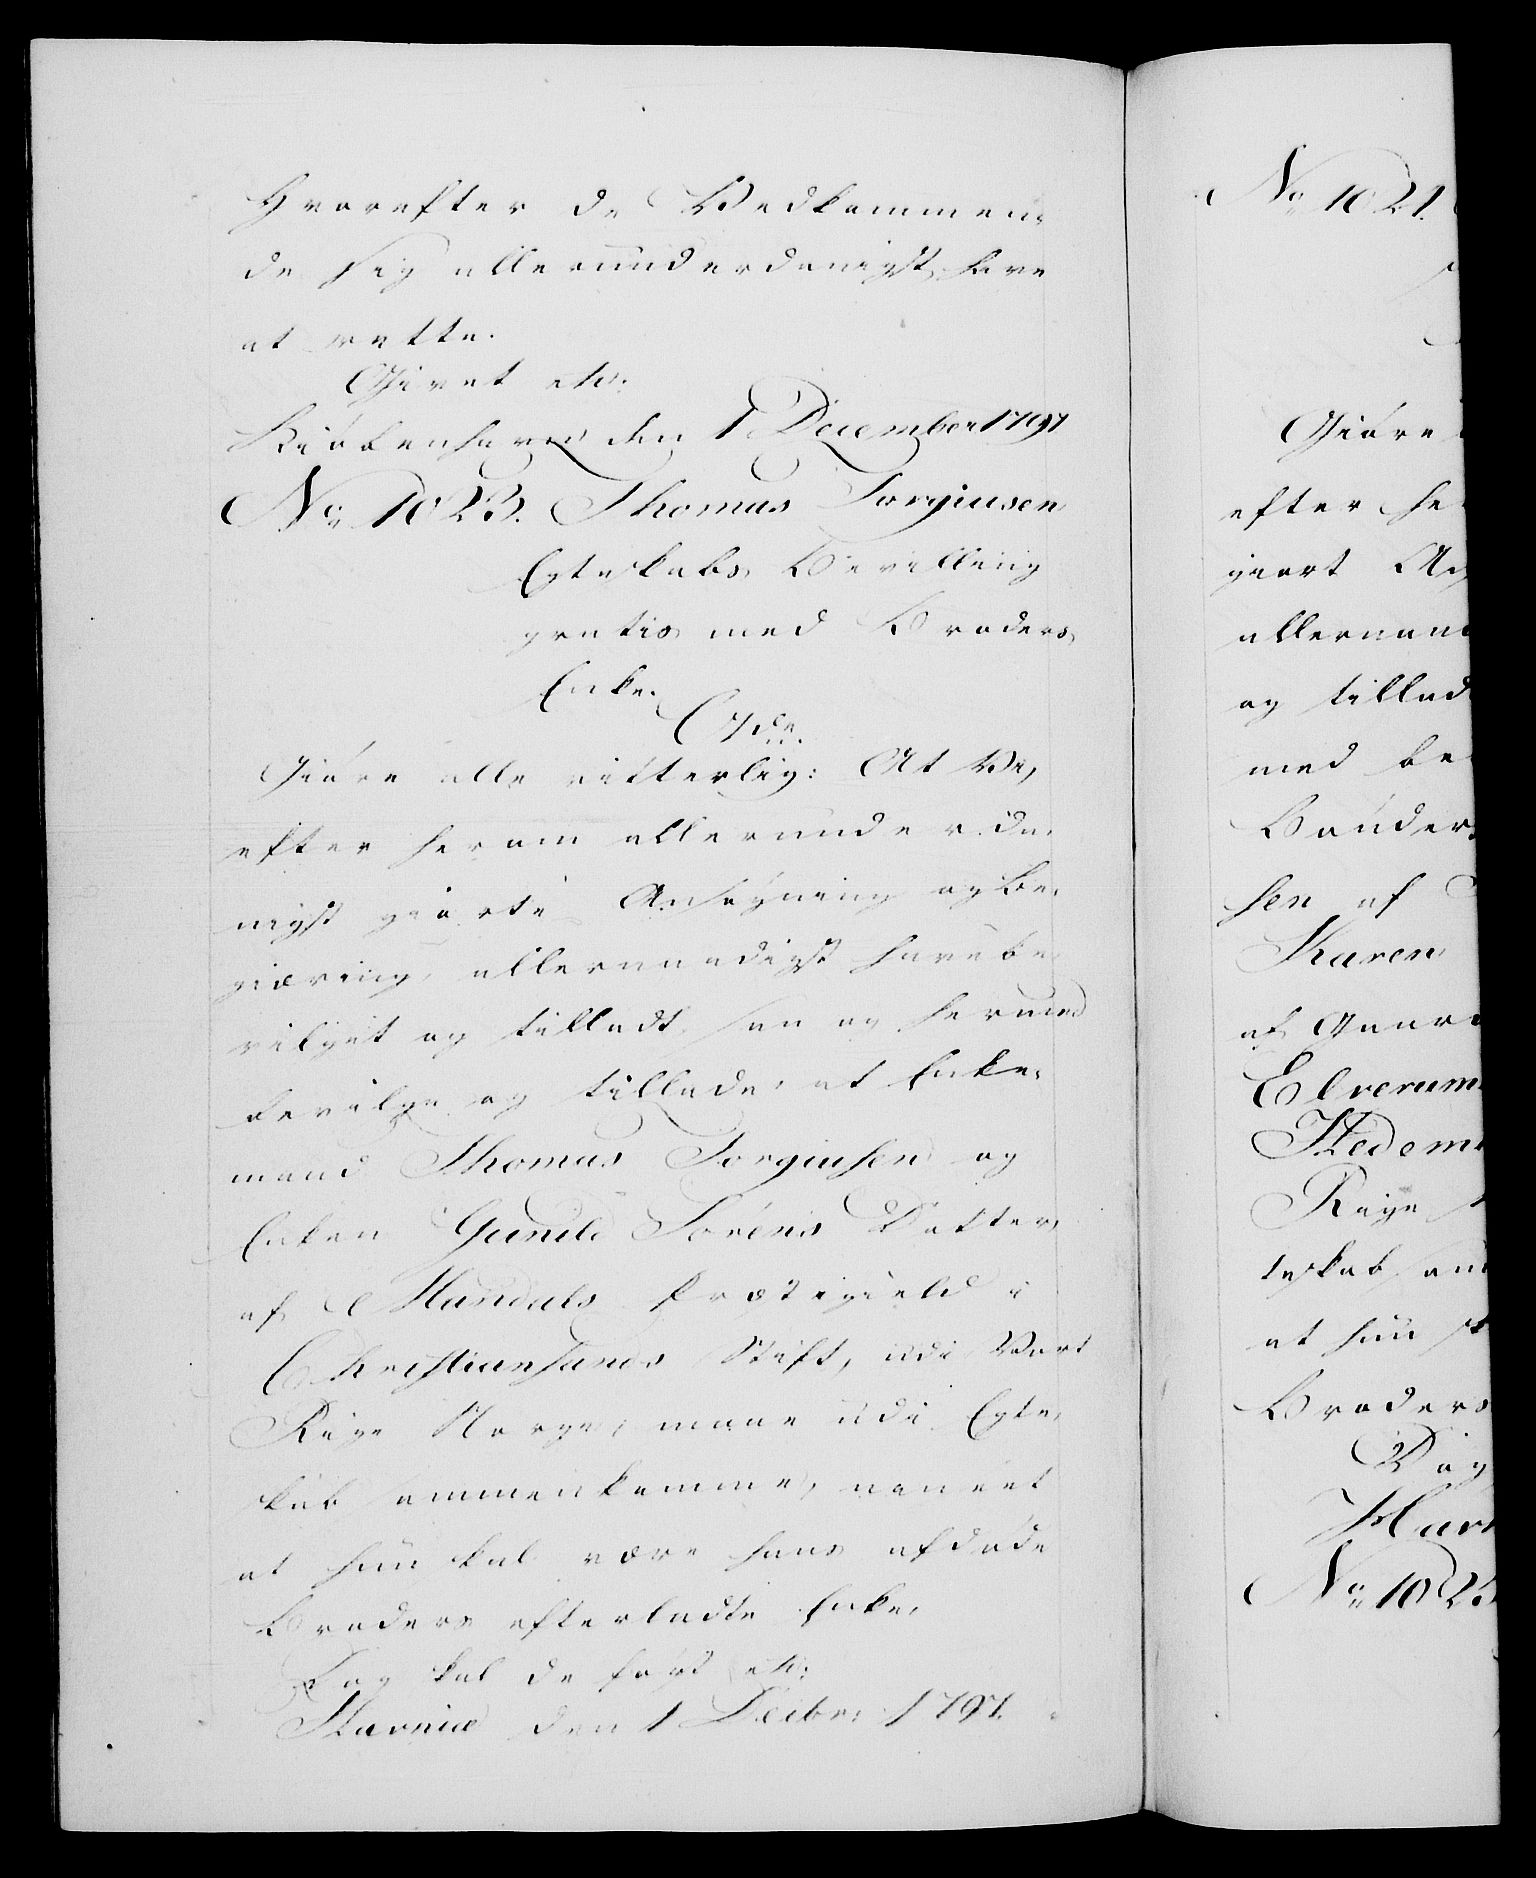 Hvorefter de Vedkommen-
de sig allerunderdanigst have
at rette.
Givet etc:
Kiøbenhavn den 1 December 1797
No 1023. Thomas Torgiusen
Egteskabs Bevilling
gratis med Broders
Enke.
C 7de.
Giøre alle vitterlig: At Vi,
efter herom allerunderda-
nigst giorte Ansøgning og Be-
giæring, allernaadigst have be-
vilget og tilladt, saa og hermed
bevilge og tillade, at Enke-
mand Thomas Torgiusen og
Enken Gunild Sørens Datter
af Mandals Præstegield i
Christiansands Stift, udi Vort
Rige Norge, maae udi Egte-
skab sammenkomme, uanseet
at hun skal være hans afdøde
Broders efterladte Enke.
Dog skal de først etc:
Havniæ den 1 Decbr: 1797.
No 1024.
Giøre
efter he
giort An
allernaad
og tillad
med be
Bonder
sen af
Karen
af Gaar
Elverum
Hedem
Rige
teskab
at hun sk
Broders
Dog
Havn
No 1025